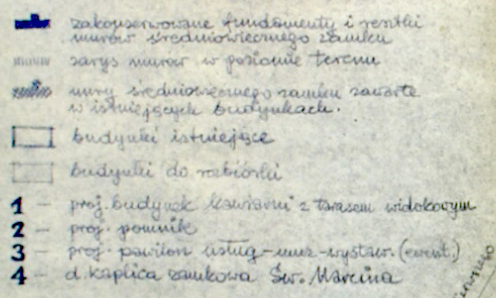 zakonserwowane fundamenty i resztki
murów średniowiecznego zamku
zarys murów w poziomie terenu
mury średniowiecznego zamku zawarte
w istniejących budynkach.
budynki istniejące
budynki do rozbiórki
1 – proj. budynek kawiarni z tarasem widokowym
2 – proj. pomnik
3 – proj. pawilon usług-muz-wystaw. (ewent.)
4 – d. kaplica zamkowa Św. Marcina